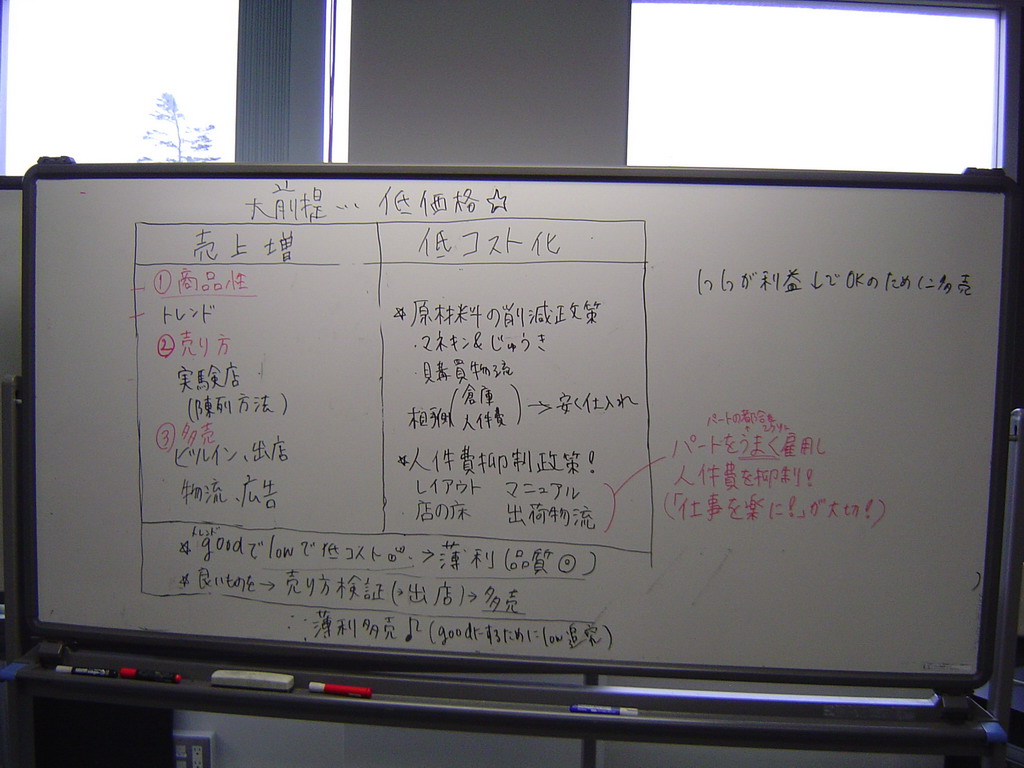 大前提… 低価格☆
売上増
低コスト化
①商品性
トレンド
②売り方
実験店
(陳列方法)
③多売
ビルイン、出店
物流、広告
☆原材料の削減政策
・マネキン&じゅうき
・購買物流
相手側(倉庫 人件費)→安く仕入れ
☆人件費抑制政策!
レイアウト マニュアル
店の床 出荷物流
トレンド
☆goodでlowで低コスト→薄利(品質◎)
☆良いものを→売り方検証(→出店)→多売
∴薄利多売♪(goodにするためにlow追究)
1つ1つが利益↓でOKのために多売
パートの都合を
パートをうまく雇用し
人件費を抑制!
(「仕事を楽に!」が大切!)